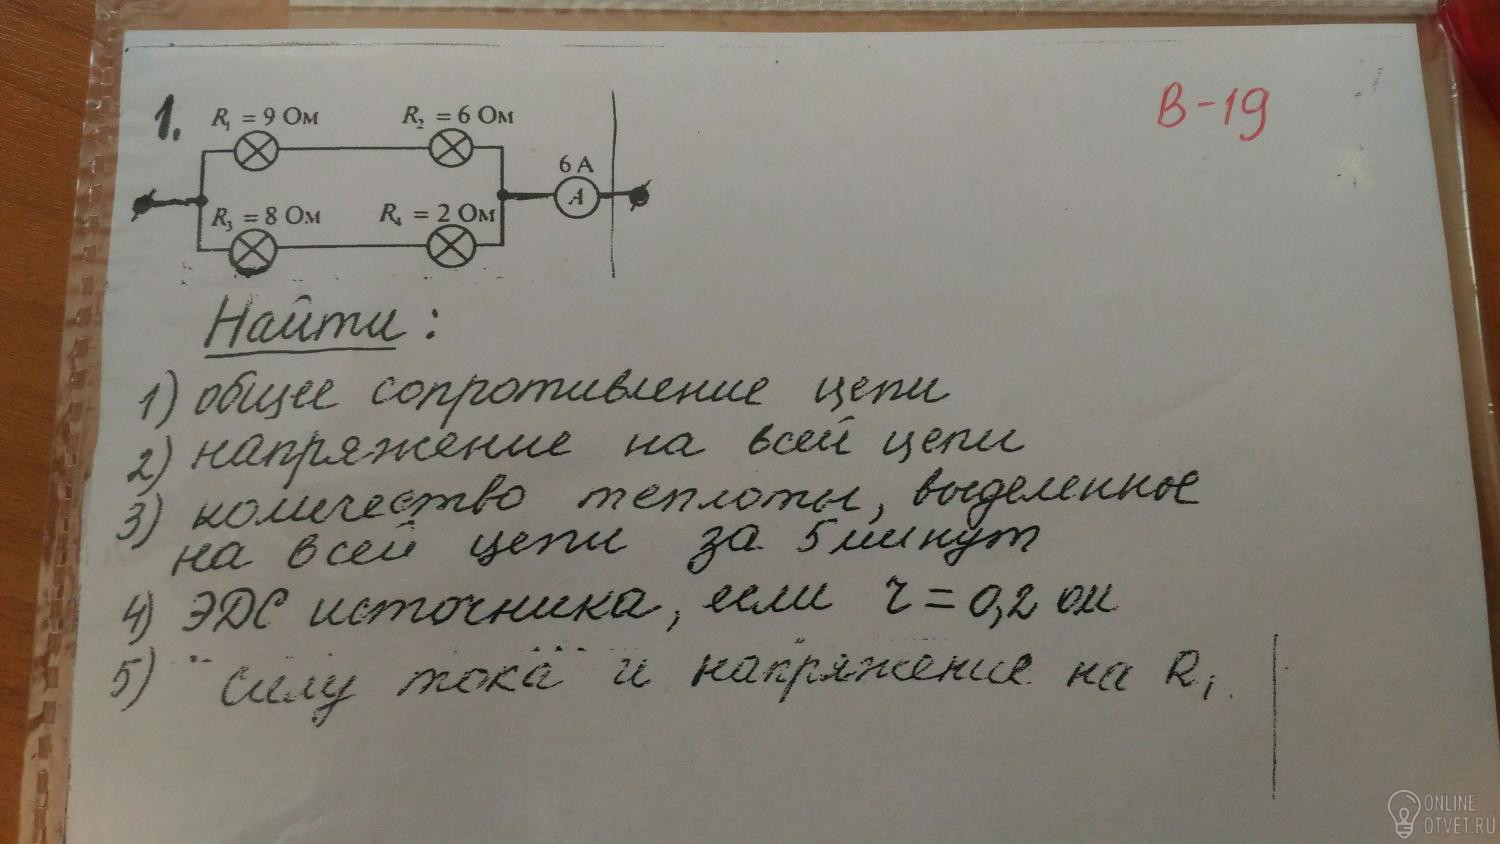 В-19
1.
R₁ = 9 Ом
R₂ = 6 Ом
6 А
A
R₃ = 8 Ом
R₄ = 2 Ом
Найти:
1) общее сопротивление цепи
2) напряжение на всей цепи
3) количество теплоты, выделенное
на всей цепи за 5 минут
4) ЭДС источника, если r = 0,2 ом
5) силу тока и напряжение на R₁.
ONLINE
OTVET.RU